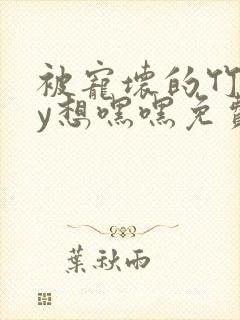 被寵壞的竹
y想嘿嘿免費
葉秋雨